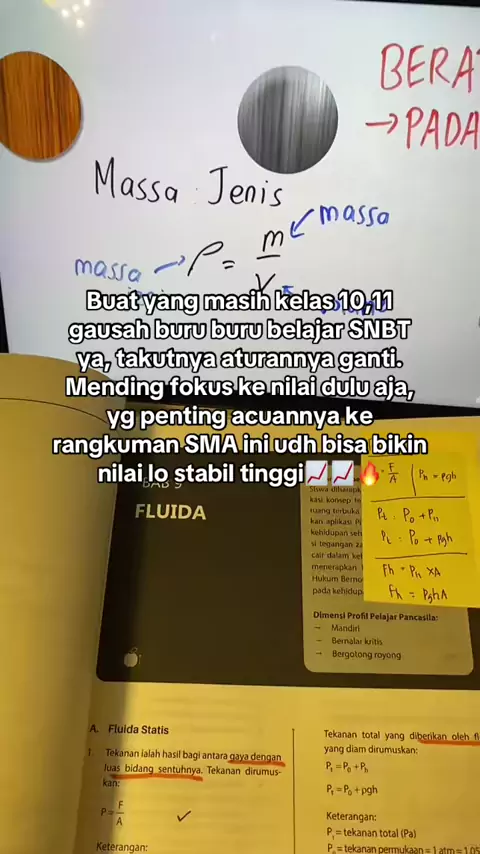 BERA
→PADA
Massa Jenis
massa
massa
ρ = m
V
Buat yang masih kelas 10,11
gausah buru buru belajar SNBT
ya, takutnya aturannya ganti.
Mending fokus ke nilai dulu aja,
yg penting acuannya ke
rangkuman SMA ini udh bisa bikin
nilai lo stabil tinggi📈📈🔥
BAB 9
FLUIDA
kasi konsep
ruang terbuka
kan aplikasi
kehidupan
si tegangan
cair dalam
menerapkan
Hukum
pada
= F/A
Ph = ρgh
Pt = P0 + Ph
Pt = P0 + ρgh
Fh = Ph x A
Fh = ρghA
Dimensi Profil Pelajar Pancasila:
→ Mandiri
→ Bernalar kritis
→ Bergotong royong
A. Fluida Statis
1. Tekanan ialah hasil bagi antara gaya dengan
luas bidang sentuhnya. Tekanan dirumus-
kan:
P = F/A
Keterangan:
Tekanan total yang diberikan oleh
yang diam dirumuskan:
Pt = P0 + Ph
Pt = P0 + ρgh
Keterangan:
Pt = tekanan total (Pa)
= tekanan permukaan = 1 atm =